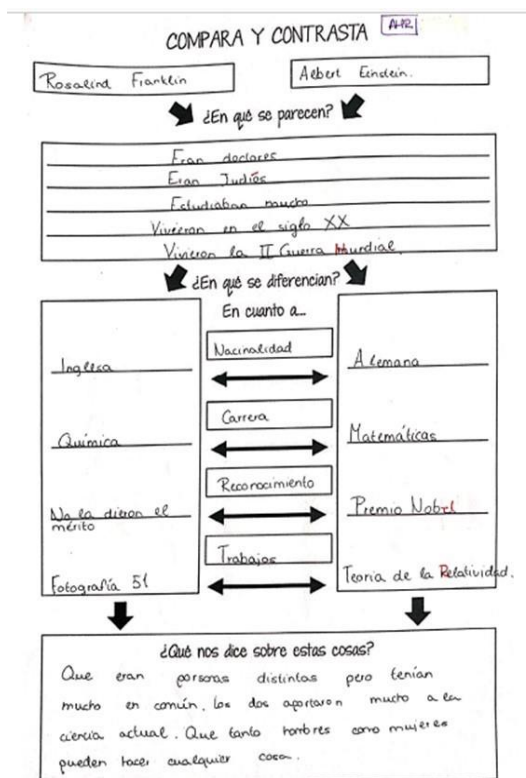 COMPARA Y CONTRASTA AHR
Rosalind Franklin
Albert Einstein.
¿En qué se parecen?
Eran doctores
Eran Judíos
Estudiaban mucho
Vivieron en el siglo XX
Vivieron la II Guerra Mundial.
¿En qué se diferencian?
En cuanto a...
Nacinalidad
Inglesa
Alemana
Carrera
Química
Matemáticas
Reconocimiento
No la dieron el
mérito
Premio Nobel
Trabajos
Fotografía 51
Teoria de la Relatividad.
¿Qué nos dice sobre estas cosas?
Que eran personas distintas pero tenían
mucho en común. Los dos aportaron mucho a la
ciencia actual. Que tanto hombres como mujeres
pueden hacer cualquier cosa.